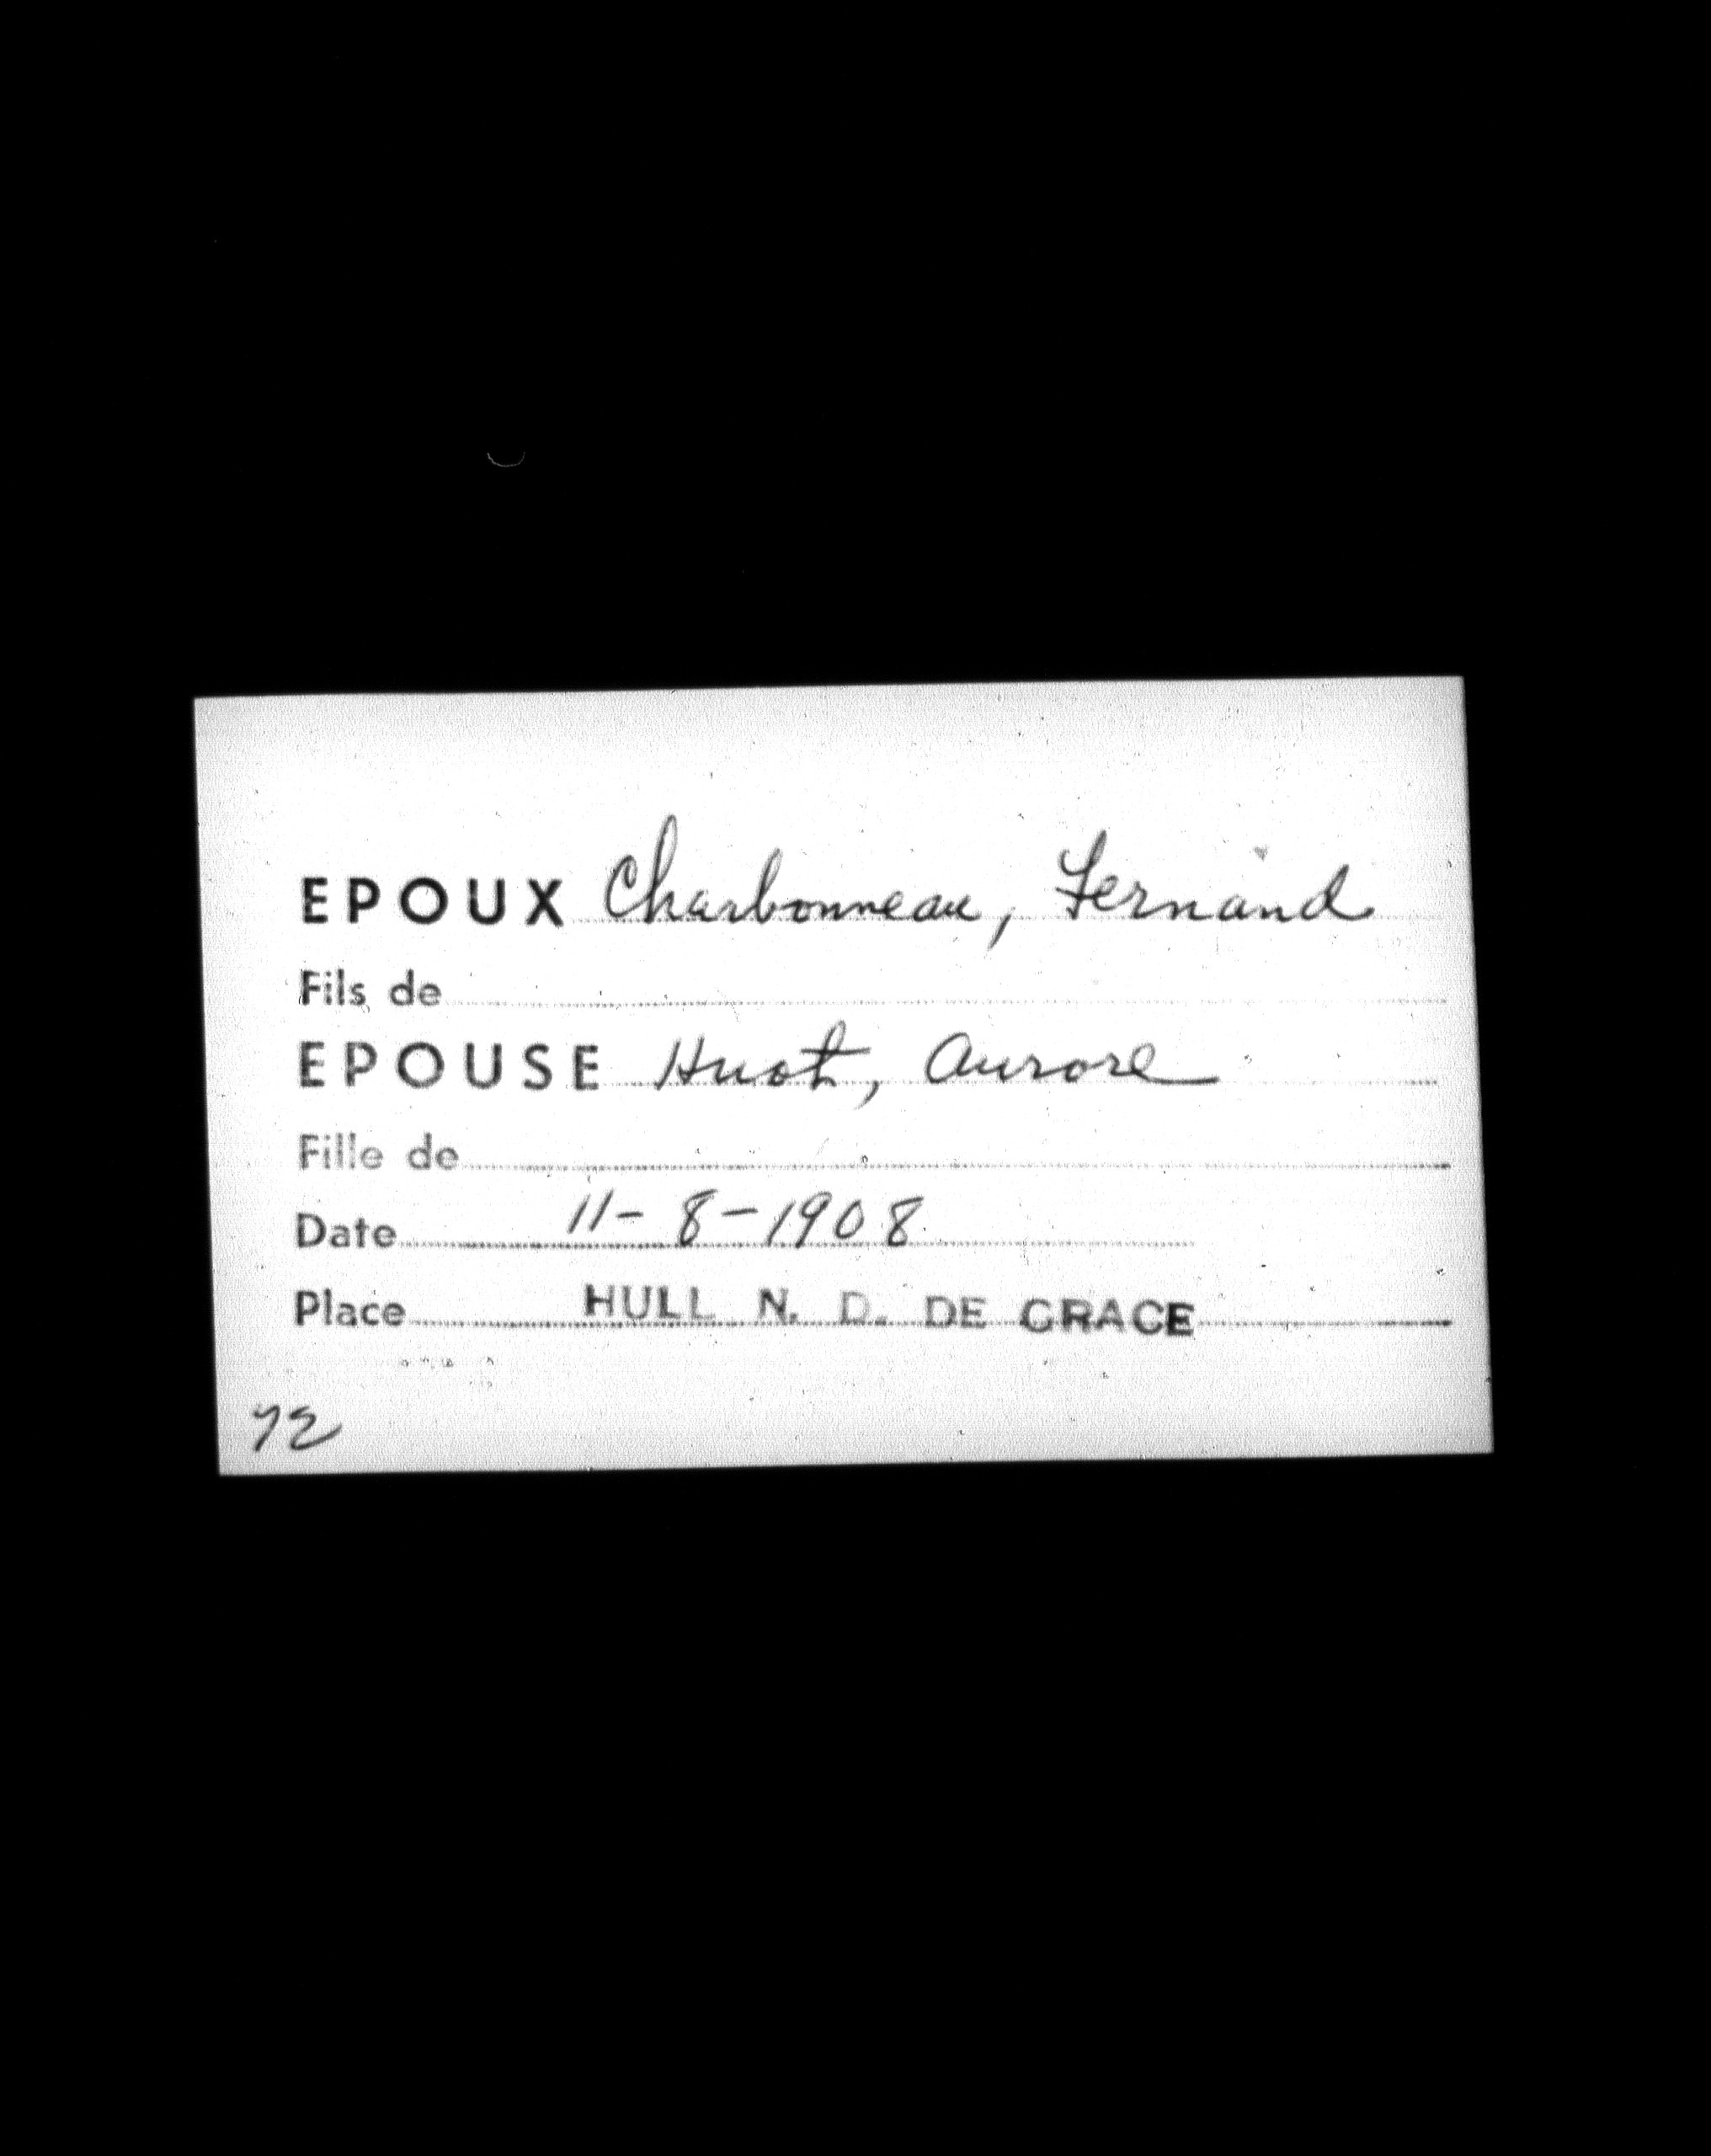 EPOUX Charbonneau, Fernand
Fils de
EPOUSE Huot, Aurore
Fille de
Date 11-8-1908
Place HULL N. D. DE GRACE
72